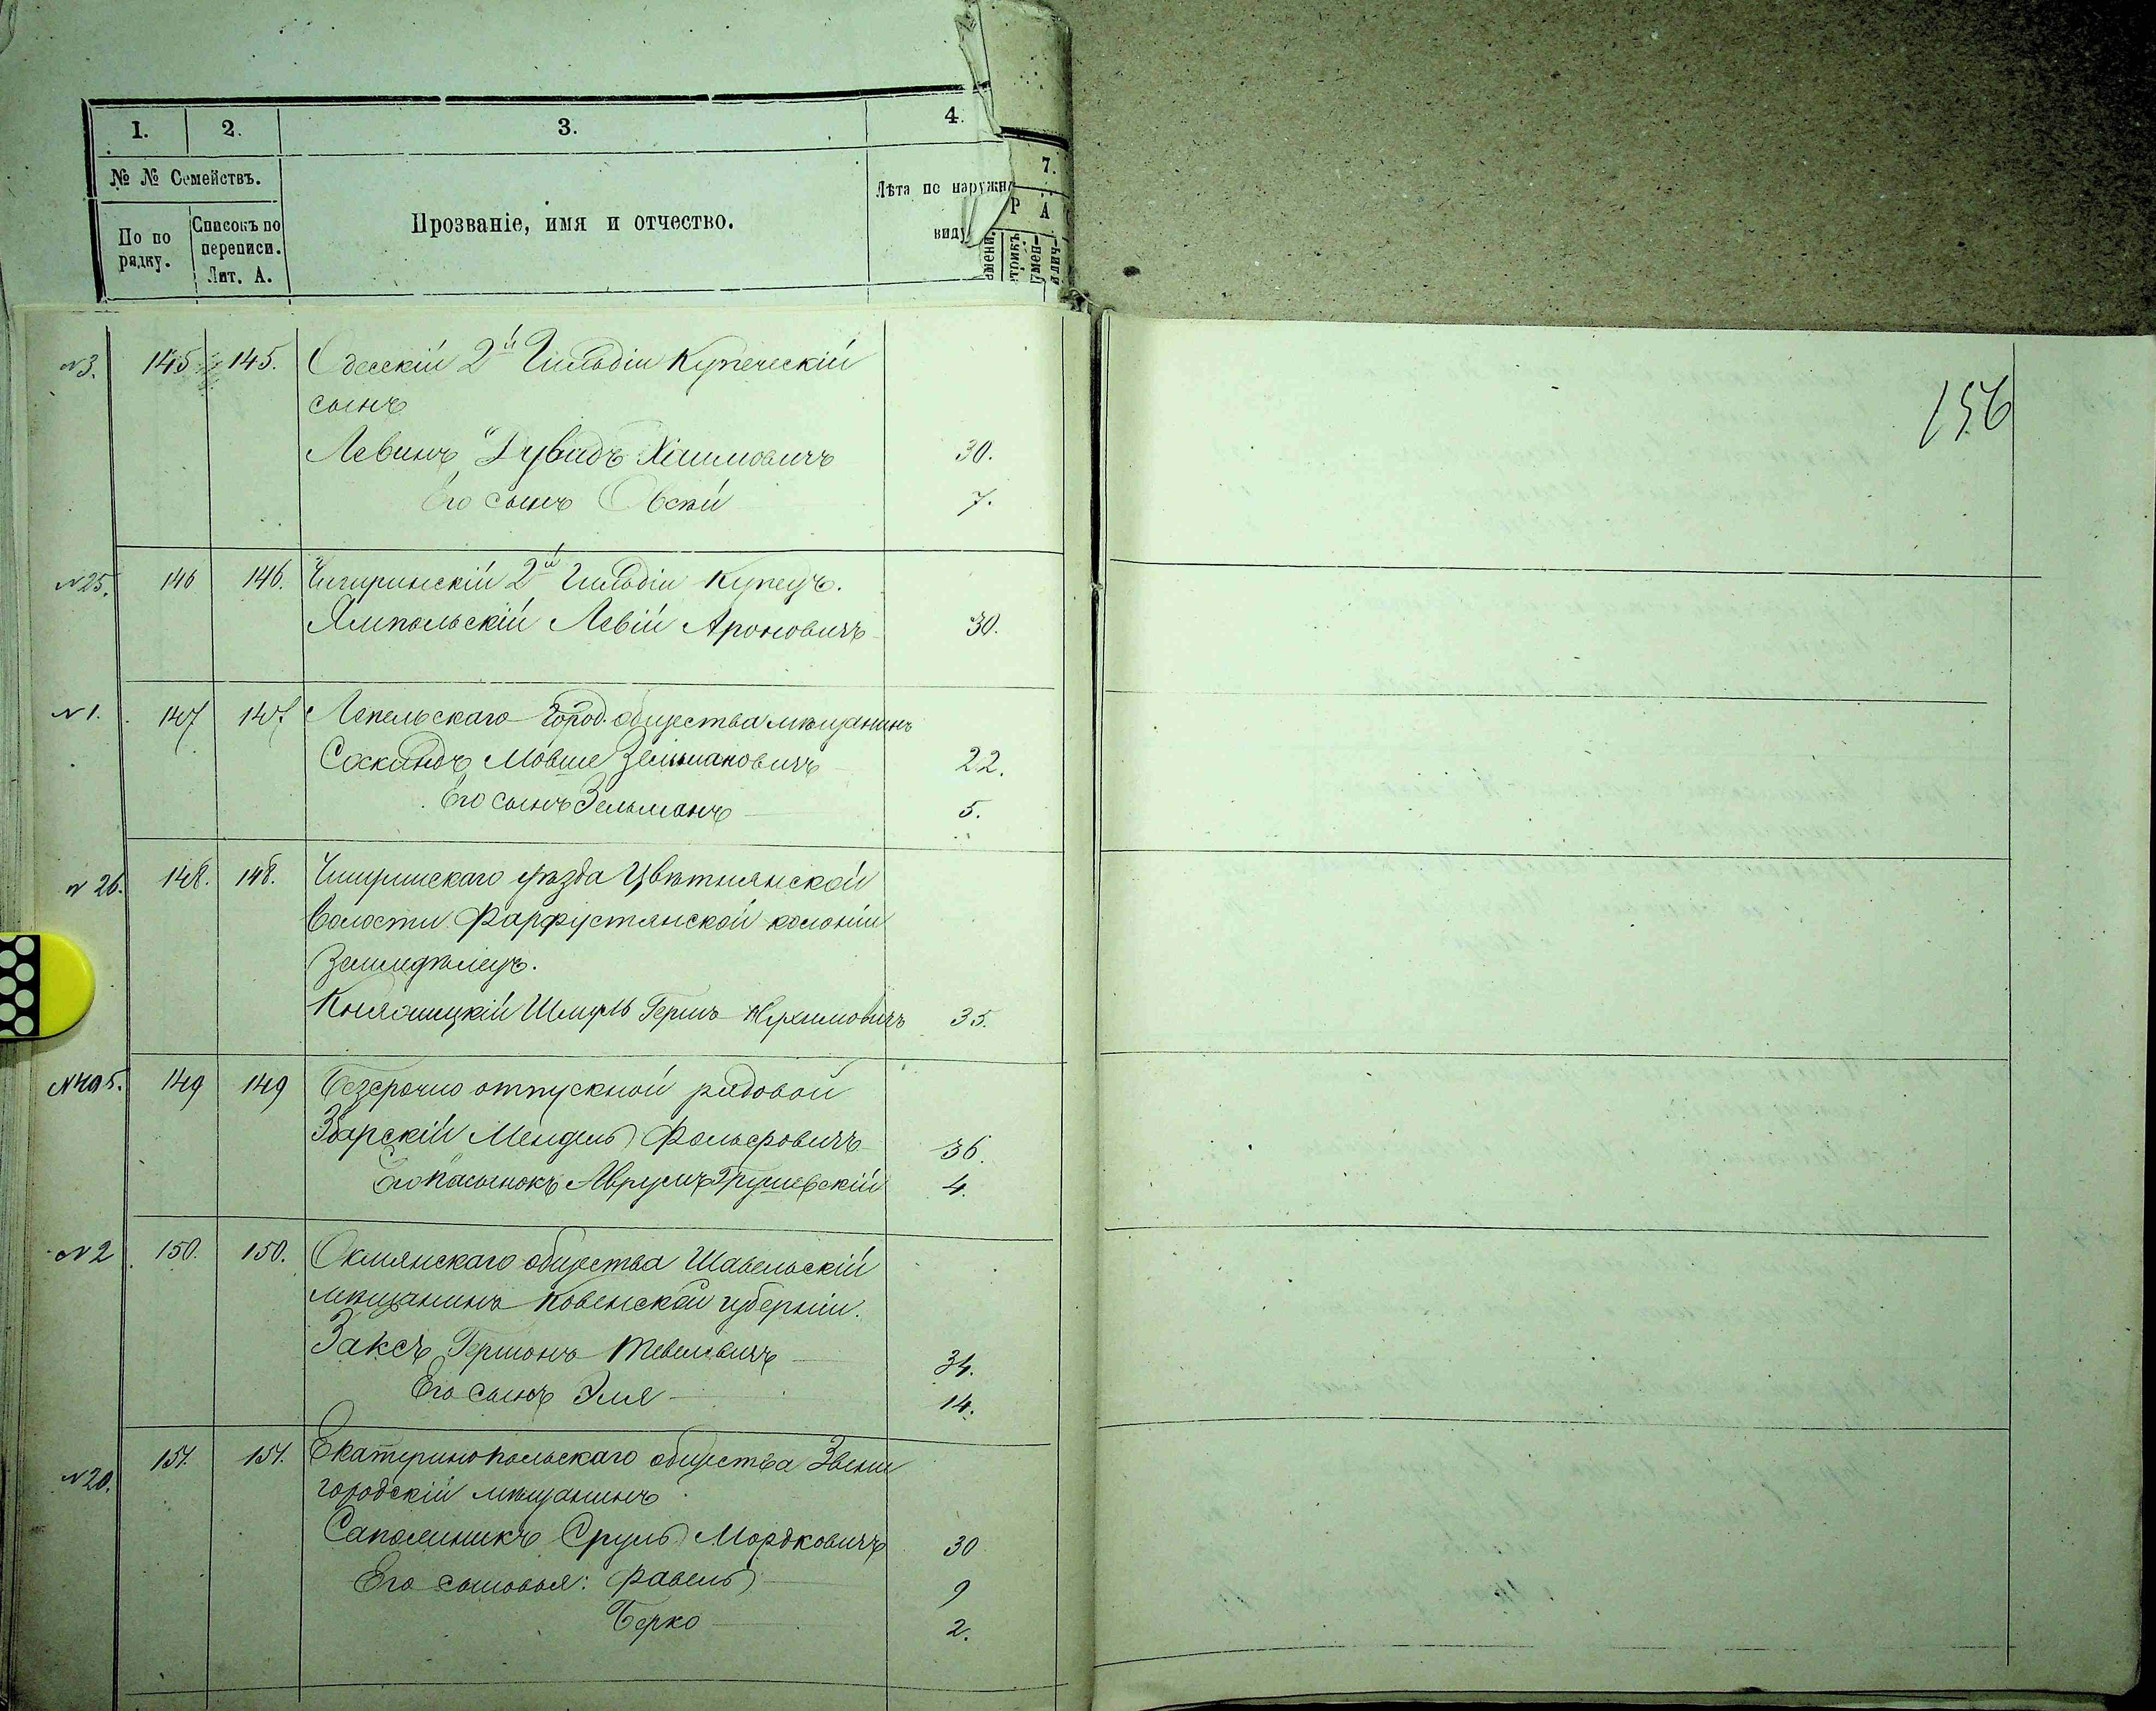 1. 2. 3. 4.
7.
№ № Семействъ.
По по рядку.
Списокъ по переписи. Лит. А.
Прозваніе, имя и отчество.
Лѣта по наружн
виду
Р А
156
№3. 145 145. Одесскій 2й Гильдіи Купеческій
сынъ
Левинъ Дувидъ Хаимовичъ 30.
Его сынъ Овсѣй 7.
№25. 146 146. Чигиринскій 2й Гильдіи Купецъ.
Ямпольскій Левій Ароновичъ 30.
№1. 147 147. Лепельскаго город. общества мѣщанинъ
Соскиндъ Мовше Зельмановичъ 22.
Его сынъ Зельманъ 5.
№26. 148. 148. Чигиринскаго уѣзда Цвѣтнянской
Волости Фарфустянской колоніи
Земледѣлецъ.
Шмуль Гершъ Нухимовичъ 35.
№495. 149 149 Безсрочно отпускной рядовой
Збарскій Мендель 36.
Его пасынокъ Аврумъ Грушевскій 4.
№2 150. 150. Окмянскаго общества Шавельскій
мѣщанинъ Ковенской губерніи.
Заксъ Гершонъ Тевелевичъ 34.
Его сынъ Эля 14.
№20. 151. 151. Екатеринопольскаго общества Звени
городскій мѣщанинъ
Сруль Мордковичъ 30
Его сыновья: Фавель 9
Берко 2.